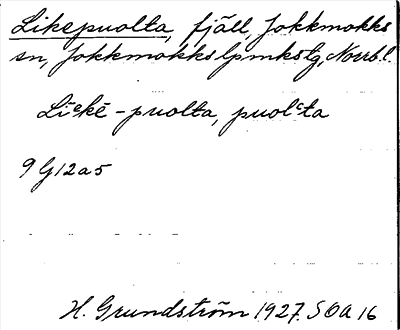 Likepuolta, fjäll, Jokkmokks
sn, Jokkmokks lpmkstg, Norrb. l.
Liᵉkē-puolta, puolᶜta
9 G 12 a 5
H. Grundström 1927. SOA 16